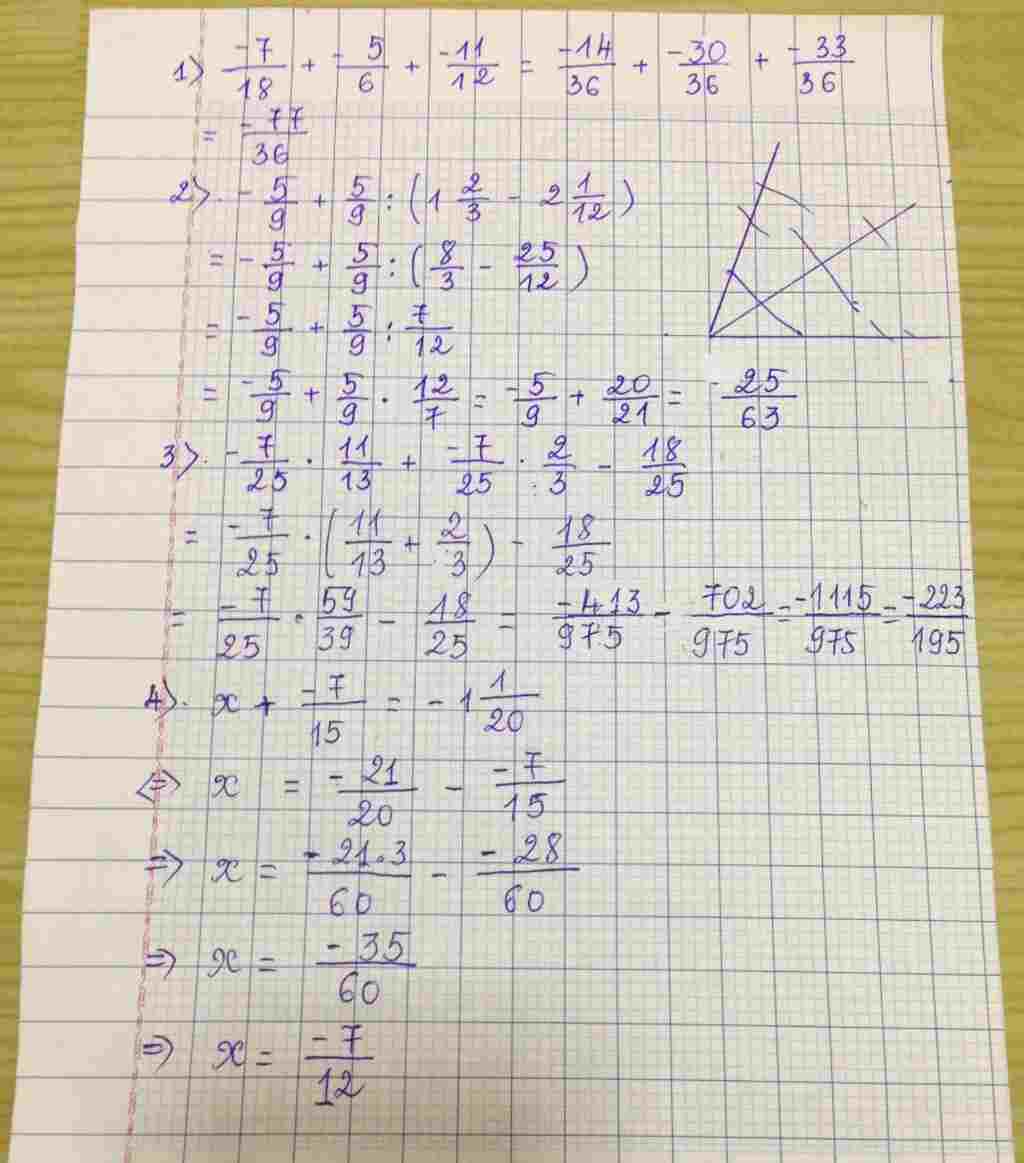 1) -7/18 + -5/6 + -11/12 = -14/36 + -30/36 + -33/36
= -77/36
2) -5/9 + 5/9 : (1 2/3 - 2 1/12)
= -5/9 + 5/9 : (8/3 - 25/12)
= -5/9 + 5/9 : 7/12
= -5/9 + 5/9 . 12/7 = -5/9 + 20/21 = -25/63
3) -7/25 . 11/13 + -7/25 . 2/3 - 18/25
= -7/25 . (11/13 + 2/3) - 18/25
= -7/25 . 59/39 - 18/25 = -413/975 - 702/975 = -1115/975 = -223/195
4) x + -7/15 = -1 1/20
⇔ x = -21/20 - -7/15
⇒ x = -21.3/60 - -28/60
⇒ x = -35/60
⇒ x = -7/12